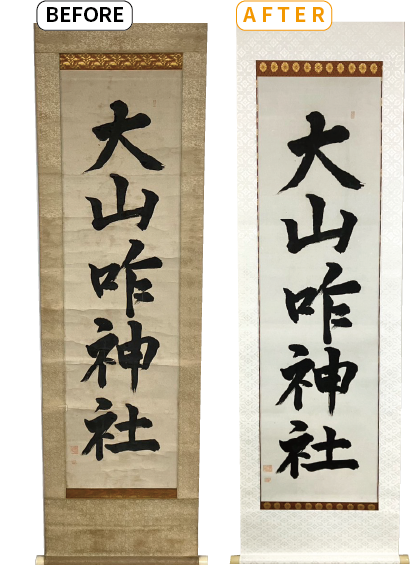 BEFORE
大山咋神社
AFTER
大山咋神社